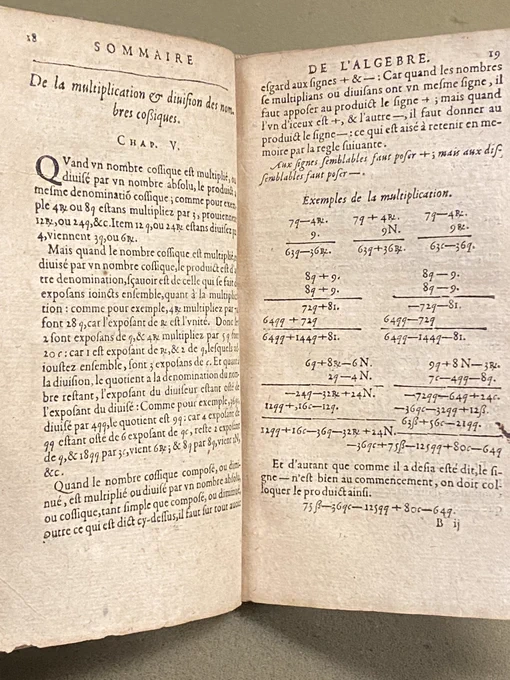 18
SOMMAIRE
De la multiplication & diuision des nom-
bres coßiques.
CHAP. V.
QVand vn nombre coſſique est multiplié, ou
diuisé par vn nombre absolu, le produict
mesme denominatiõ coſſique; comme pour exem-
ple 4R estans multipliez par 3, prouiennent
12R, ou 24q, &c. Item 12 q, ou 24R estans diuisez par
4, viennent 3q, ou 6R.
Mais quand le nombre coſſique est multiplié,
diuisé par vn nombre coſſique, le produict est d'au
tre denomination, sçauoir est de celle qui se fait
exposans ioincts ensemble, quant à la multiplica
tion : comme pour exemple, 4R multipliez par
font 28q, car l'exposant de R est l'vnité. Donc
2 sont exposans de q, & 4R multiplié par 5 q font
20 c : car 1 est exposant de R, & 2 de q, lesquels ad
ioustez ensemble, sont 3 exposans de c. Et quant
la diuision, le quotient a la denomination du nom-
bre restant, l'exposant du diuiseur estant osté de
l'exposant du diuisé : Comme pour exemple, 36qc
diuisé par 4qq, le quotient est 9q : car 4 exposant de
qq estant osté de 6 exposant de qc, reste 2 exposant
de q, & 18qq par 3c, vient 6R; & 8q par 8q, vient 1N,
&c.
Quand le nombre coſſique composé, ou dimi-
nué, est multiplié ou diuisé par vn nombre absolu,
ou coſſique, tant simple que composé, ou diminué,
outre ce qui est dict cy-dessus, il faut sur tout auoir
DE L'ALGEBRE.
19
esgard aux signes + & — : Car quand les nombres
se multiplians ou diuisans ont vn mesme signe, il
faut apposer au produict le signe +; mais quand
l'vn d'iceux est +, & l'autre —, il faut donner au
produict le signe — : ce qui est aisé à retenir en me-
moire par la regle suiuante.
Aux signes semblables faut poser +; mais aux dis-
semblables faut poser —.
Exemples de la multiplication.
7q — 4R. 7q + 4R. 7q — 4R.
9. 9N. 9R.
63q—36R. 63q+36R. 63c—36q.
8q + 9. 8q — 9.
8q + 9. 8q — 9.
72q+81. —72q—81.
64qq + 72q 64qq—72q
64qq+144q+81. 64qq—144q—81.
6q+8R—6N. 9q+8N—3R.
2q—4N. 7c—4qq—8q.
—24q—32R+24N. —72qq—64q+24c.
12qq+16c—12q. —36qc—32qq+12ß.
12qq+16c—36q—32R+24N. 63ß+56c—21qq.
—36qc+75ß—125qq+80c—64q
Et d'autant que comme il a desia esté dit, le si-
gne — n'est bien au commencement, on doit col-
loquer le produict ainsi.
75ß—36qc—125qq + 80c—64q.
B ij